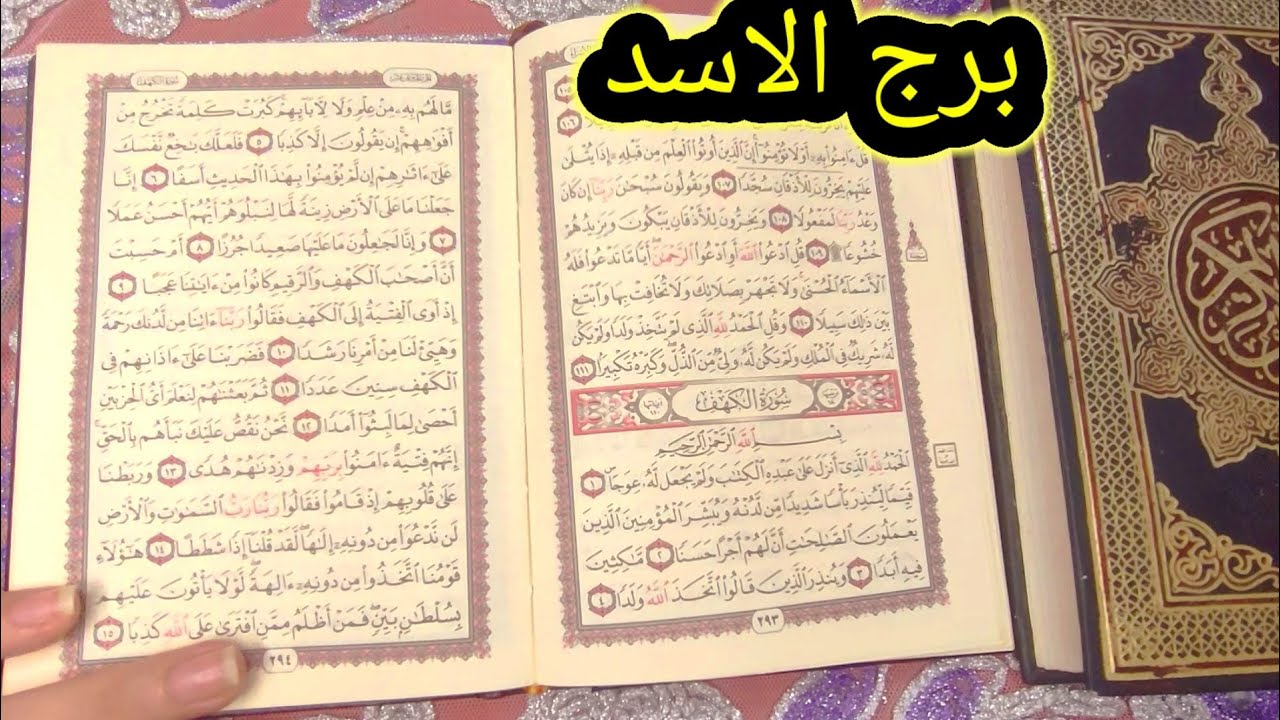 برج الاسد
١٠٥
١٠٦
قُلْ ءَامِنُوا۟ بِهِۦٓ أَوْ لَا تُؤْمِنُوٓا۟ إِنَّ ٱلَّذِينَ أُوتُوا۟ ٱلْعِلْمَ مِن قَبْلِهِۦٓ إِذَا يُتْلَىٰ
عَلَيْهِمْ يَخِرُّونَ لِلْأَذْقَانِ سُجَّدًا ١٠٧ وَيَقُولُونَ سُبْحَٰنَ رَبِّنَآ إِن كَانَ
وَعْدُ رَبِّنَا لَمَفْعُولًا ١٠٨ وَيَخِرُّونَ لِلْأَذْقَانِ يَبْكُونَ وَيَزِيدُهُمْ
خُشُوعًا ۩ ١٠٩ قُلِ ٱدْعُوا۟ ٱللَّهَ أَوِ ٱدْعُوا۟ ٱلرَّحْمَٰنَ أَيًّا مَّا تَدْعُوا۟ فَلَهُ
ٱلْأَسْمَآءُ ٱلْحُسْنَىٰ وَلَا تَجْهَرْ بِصَلَاتِكَ وَلَا تُخَافِتْ بِهَا وَٱبْتَغِ
بَيْنَ ذَٰلِكَ سَبِيلًا ١١٠ وَقُلِ ٱلْحَمْدُ لِلَّهِ ٱلَّذِى لَمْ يَتَّخِذْ وَلَدًا وَلَمْ يَكُن
لَّهُۥ شَرِيكٌ فِى ٱلْمُلْكِ وَلَمْ يَكُن لَّهُۥ وَلِىٌّ مِّنَ ٱلذُّلِّ وَكَبِّرْهُ تَكْبِيرًۢا ١١١
سُورَةُ الكَهْفِ
بِسْمِ ٱللَّهِ ٱلرَّحْمَٰنِ ٱلرَّحِيمِ
ٱلْحَمْدُ لِلَّهِ ٱلَّذِىٓ أَنزَلَ عَلَىٰ عَبْدِهِ ٱلْكِتَٰبَ وَلَمْ يَجْعَل لَّهُۥ عِوَجَا ١
قَيِّمًا لِّيُنذِرَ بَأْسًا شَدِيدًا مِّن لَّدُنْهُ وَيُبَشِّرَ ٱلْمُؤْمِنِينَ ٱلَّذِينَ
يَعْمَلُونَ ٱلصَّٰلِحَٰتِ أَنَّ لَهُمْ أَجْرًا حَسَنًا ٢ مَّٰكِثِينَ
فِيهِ أَبَدًا ٣ وَيُنذِرَ ٱلَّذِينَ قَالُوا۟ ٱتَّخَذَ ٱللَّهُ وَلَدًا ٤
٢٩٣
سُورَةُ الكَهْفِ
مَّا لَهُم بِهِۦ مِنْ عِلْمٍ وَلَا لِءَابَآئِهِمْ كَبُرَتْ كَلِمَةً تَخْرُجُ مِنْ
أَفْوَٰهِهِمْ إِن يَقُولُونَ إِلَّا كَذِبًا ٥ فَلَعَلَّكَ بَٰخِعٌ نَّفْسَكَ
عَلَىٰٓ ءَاثَٰرِهِمْ إِن لَّمْ يُؤْمِنُوا۟ بِهَٰذَا ٱلْحَدِيثِ أَسَفًا ٦ إِنَّا
جَعَلْنَا مَا عَلَى ٱلْأَرْضِ زِينَةً لَّهَا لِنَبْلُوَهُمْ أَيُّهُمْ أَحْسَنُ عَمَلًا
٧ وَإِنَّا لَجَٰعِلُونَ مَا عَلَيْهَا صَعِيدًا جُرُزًا ٨ أَمْ حَسِبْتَ
أَنَّ أَصْحَٰبَ ٱلْكَهْفِ وَٱلرَّقِيمِ كَانُوا۟ مِنْ ءَايَٰتِنَا عَجَبًا ٩
إِذْ أَوَى ٱلْفِتْيَةُ إِلَى ٱلْكَهْفِ فَقَالُوا۟ رَبَّنَآ ءَاتِنَا مِن لَّدُنكَ رَحْمَةً
وَهَيِّئْ لَنَا مِنْ أَمْرِنَا رَشَدًا ١٠ فَضَرَبْنَا عَلَىٰٓ ءَاذَانِهِمْ فِى
ٱلْكَهْفِ سِنِينَ عَدَدًا ١١ ثُمَّ بَعَثْنَٰهُمْ لِنَعْلَمَ أَىُّ ٱلْحِزْبَيْنِ
أَحْصَىٰ لِمَا لَبِثُوٓا۟ أَمَدًا ١٢ نَّحْنُ نَقُصُّ عَلَيْكَ نَبَأَهُم بِٱلْحَقِّ
إِنَّهُمْ فِتْيَةٌ ءَامَنُوا۟ بِرَبِّهِمْ وَزِدْنَٰهُمْ هُدًى ١٣ وَرَبَطْنَا
عَلَىٰ قُلُوبِهِمْ إِذْ قَامُوا۟ فَقَالُوا۟ رَبُّنَا رَبُّ ٱلسَّمَٰوَٰتِ وَٱلْأَرْضِ
لَن نَّدْعُوَا۟ مِن دُونِهِۦٓ إِلَٰهًا لَّقَدْ قُلْنَآ إِذًا شَطَطًا ١٤ هَٰٓؤُلَآءِ
قَوْمُنَا ٱتَّخَذُوا۟ مِن دُونِهِۦٓ ءَالِهَةً لَّوْلَا يَأْتُونَ عَلَيْهِم
بِسُلْطَٰنٍۭ بَيِّنٍ فَمَنْ أَظْلَمُ مِمَّنِ ٱفْتَرَىٰ عَلَى ٱللَّهِ كَذِبًا ١٥
٢٩٤